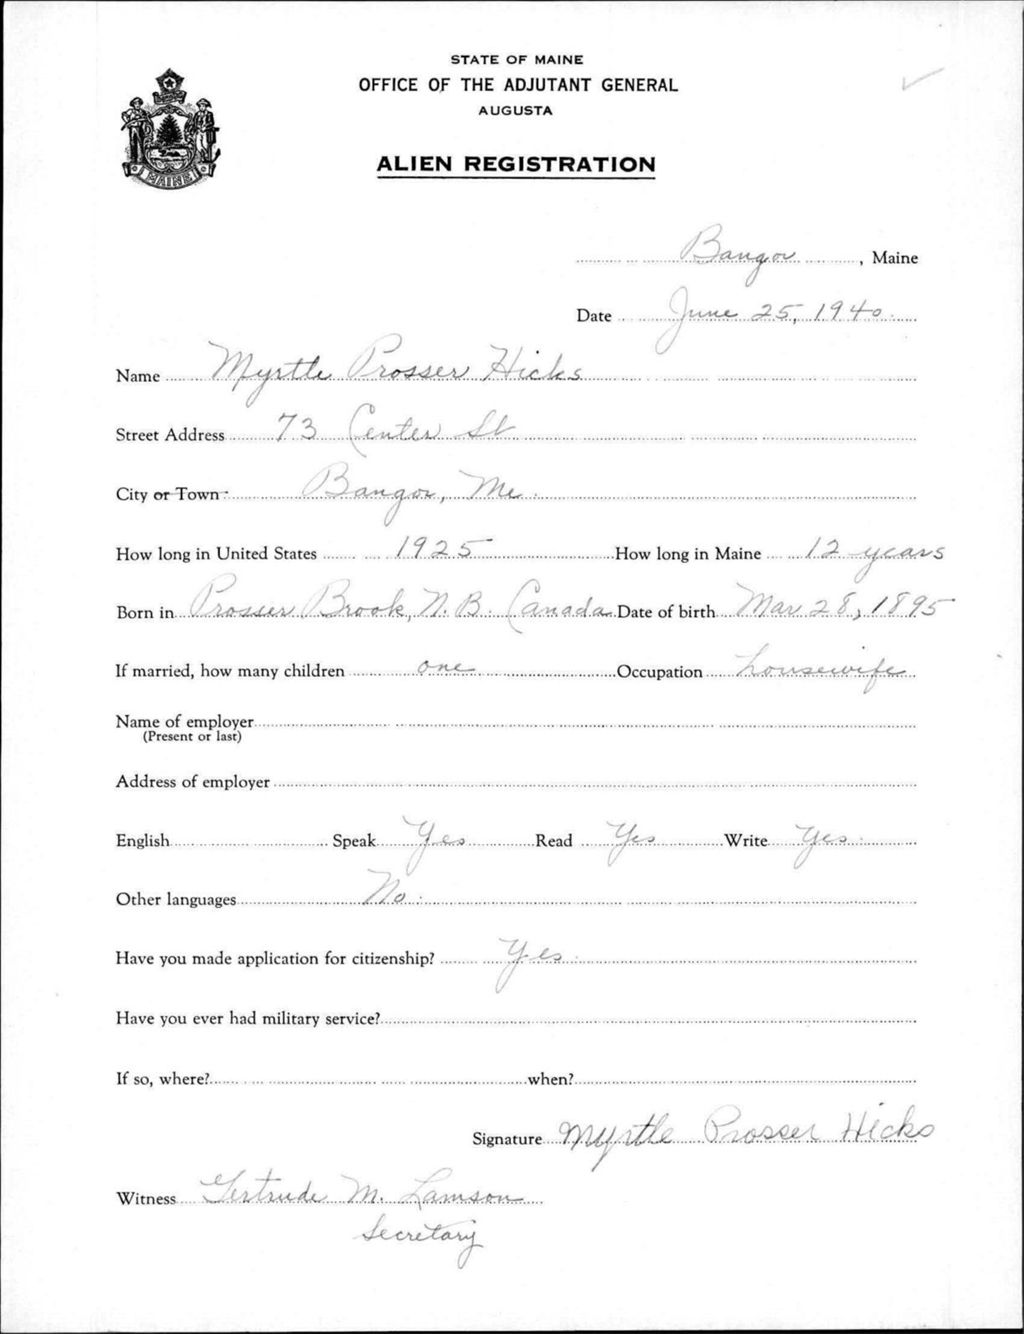 STATE OF MAINE
OFFICE OF THE ADJUTANT GENERAL
AUGUSTA
ALIEN REGISTRATION
MAINE
Bangor, Maine
Date June 25, 1940
Name Myrtle Prosser Hicks
Street Address 73 Center St
City or Town Bangor, Me.
How long in United States 1925 How long in Maine 12 years
Born in Prosser Brook, N.B. Canada Date of birth Mar 28, 1895
If married, how many children one Occupation housewife
Name of employer
(Present or last)
Address of employer
English Speak Yes Read Yes Write Yes.
Other languages No.
Have you made application for citizenship? Yes.
Have you ever had military service?
If so, where? when?
Signature Myrtle Prosser Hicks
Witness Gertrude M. Lamson
Secretary